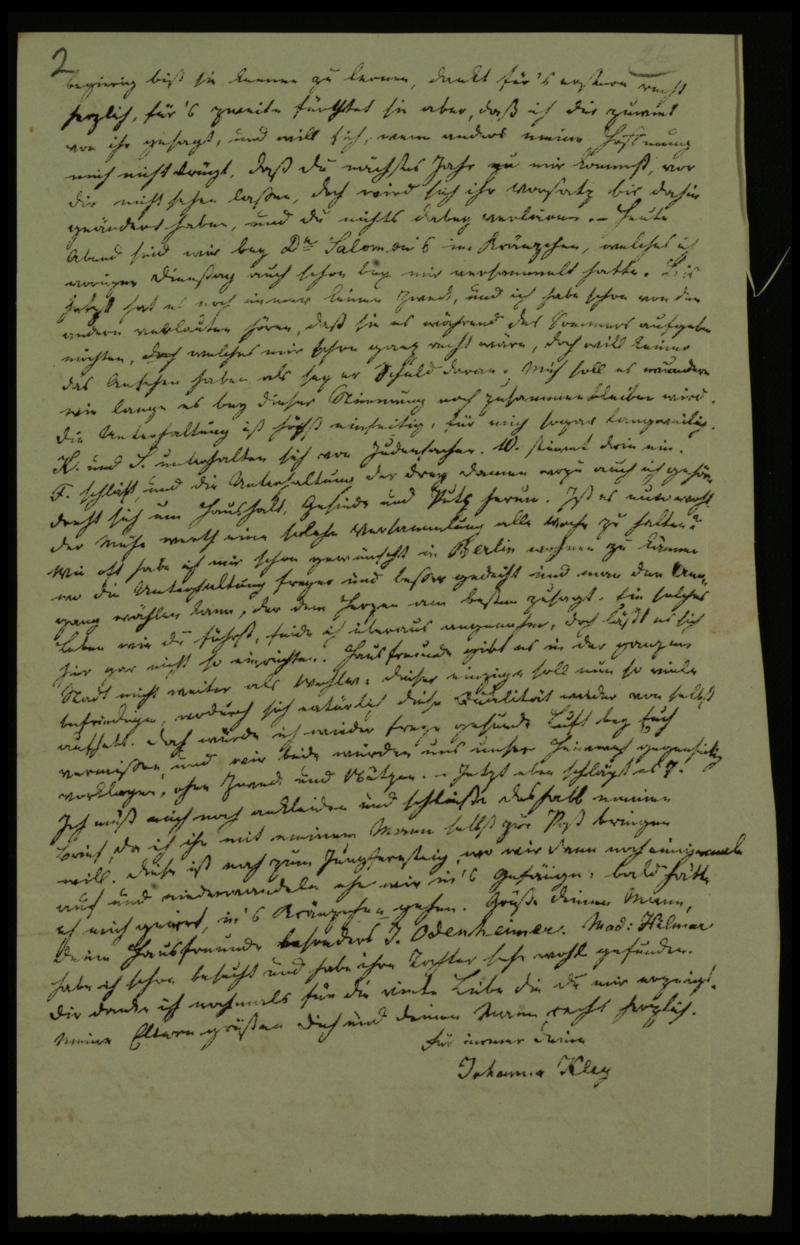 2
begierig biß sie kennen zu lernen, dankt für's erstere recht
herzlich, für's zweite fürchtet sie aber, daß ich dir zuviel
von ihr gesagt, und will sich, wenn anders meine Hoffnung
mich nicht trügt, daß du nächstes Jahr zu mir kommst, vor
dir nicht sehen laßen, doch wird sich ihr Vorsatz bis dahin
geändert haben, und du nichts dabey verlieren. – Heute
Abend sind wir bey Dr Salomon's im Kränzchen, welches ich
vorigen Dienstag auch schon bey mir versammelt hatte. Bis
jetzt hat es noch immer keinen Zweck, und ich habe schon von den
andern verlauten hören, daß sie es während des Sommers aufgeben
möchten, doch welches mir schon ganz recht wäre, doch will keiner
das Ansehen haben als sey er Schuld daran. Mich soll es wundern
wie lange es bey dieser Stimmung noch zusammenbleiben wird.
Die Unterhaltung ist höchst einseitig, für mich sogar langweilig.
K. und S. unterhalten sich von Judensachen. W. stimmt drin ein.
F. schläft, und die Unterhaltung der drey Damen wozu auch ich gehöre
dreht sich um Haushalt, Gesinde und Putz herum. Ist es nun wohl
der Mühe werth eine solche Versammlung alle Woche zu halten?
Wie oft habe ich mir schon gewünscht in Berlin wohnen zu können
wo die Unterhaltung freyer und beßer gedeiht und man den Um-
gang wählen kann, der dem Herzen am besten zusagt. Ein solches
Leben wie du führst, finde ich überaus angenehm, doch läßt es sich
hier gar nicht so einrichten. Hausfreunde gibt es in der ganzen
Stadt nicht weiter als dieser einzige soll nun so viele
befriedigen, wodurch sich natürlich diese Qualität wieder von selbst
aufhebt. Doch würde ich wieder freye gesunde Luft bey Euch
vermißen, und wir beide würden uns unser gegenseitig
vorklagen, ohne Zweck und Nützen. – Jetzt eben schlägt es 7.
Ich muß mich noch ankleiden und schließe deshalb meinen
Brief, da ich ihn mit meinem Mann selbst zur Post bringen
will. Diese ist nach zum Jungfernstieg, wo wir dann noch einigemale
auf und niederwandeln ehe wir in's Gefängn: bald hätte
ich mich geirrt, in's Kränzchen gehen. Grüße deinen Mann,
deine Hausfreunde besonders J. Odenheimer. Mad: Hilmar
habe ich schon besucht und habe ihre Tochter sehr wohl gefunden.
Dir danke ich nochmals für die viele Liebe die du mir erzeigt.
Meine Eltern grüßen dich und deinen Mann recht herzlich.
Für immer deine
Johanna Kley